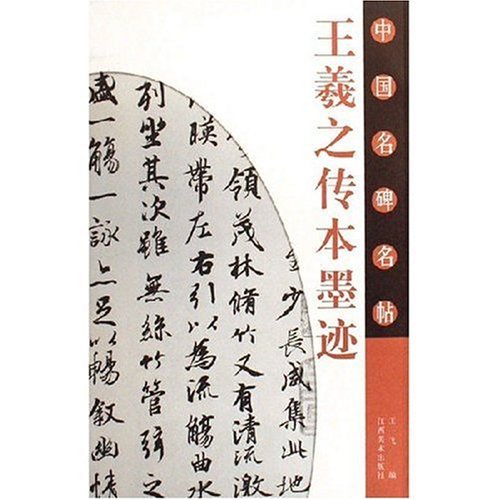 中国名碑名帖
王羲之传本墨迹
少長咸集此地
領茂林脩竹又有清流激
暎帶左右引以為流觴曲水
列坐其次雖無絲竹管弦之
盛一觴一詠亦足以暢敘幽情
编
江西美术出版社